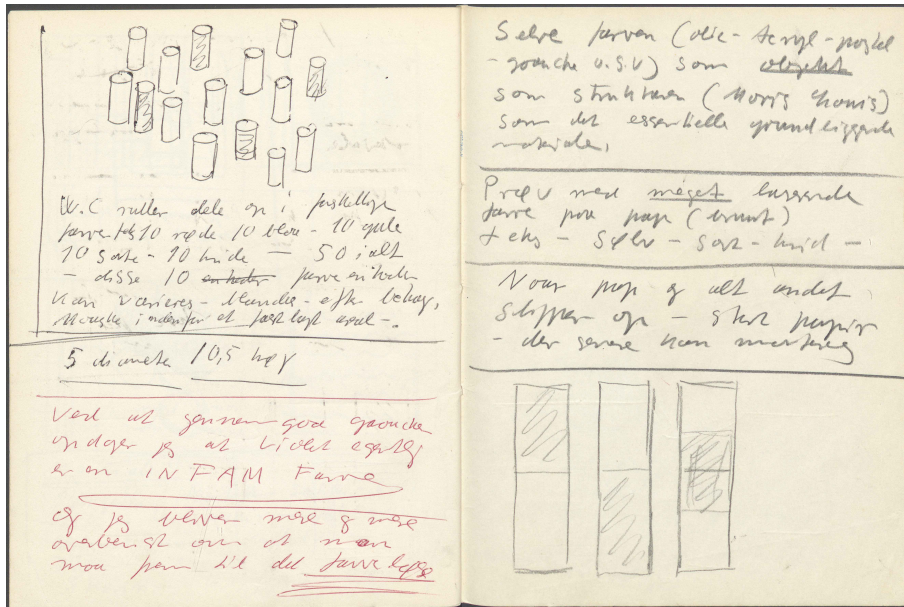 W.C ruller dele op i forskellige
farver 10 røde 10 blå - 10 gule
10 sorte - 10 hvide — 50 i alt
- disse 10 enheder farve enheder
kan varieres - blandes - efter behag,
måske indenfor et fast lagt areal -.
5 diameter 10,5 høj
Ved at gennemgå gouache
opdager jeg at violet egentlig
er en INFAM Farve
og jeg bliver mere og mere
overbevist om at man
må frem til det farveløse
Selve farven (olie - Acryl - pastel
- gouache o.s.v) som objekt
som strukturen (Morris Louis)
som det essentielle grundliggende
materiale.
Prøv med meget laserende
farve på pap (brunt)
f eks - Sølv - Sort - hvid -
Når pap og alt andet
slipper op - stort papir
- der senere kan